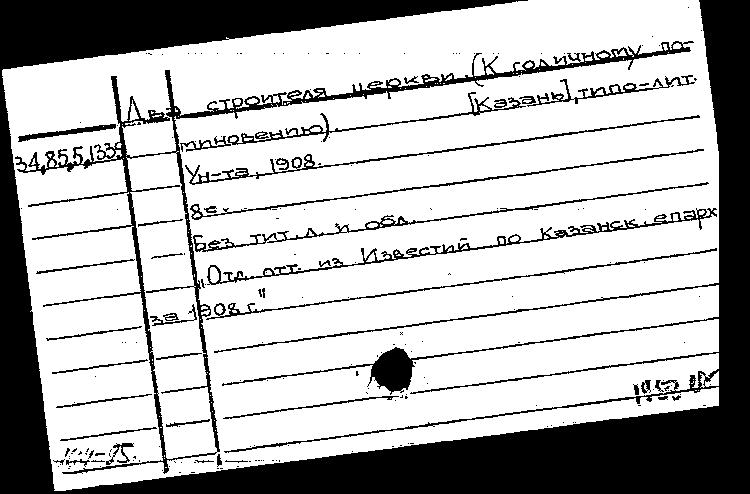 Два строителя церкви. (К годичному по-
миновению). [Казань], типо-лит.
34,85,5,1339.
Ун-та, 1908.
8с.
Без тит. л. и обл.
„Отд. отт. из Известий по Казанск. епарх
за 1908 г."